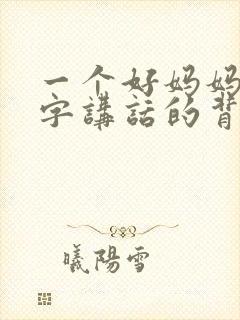 一个好妈妈
字講話的背
曦陽雪